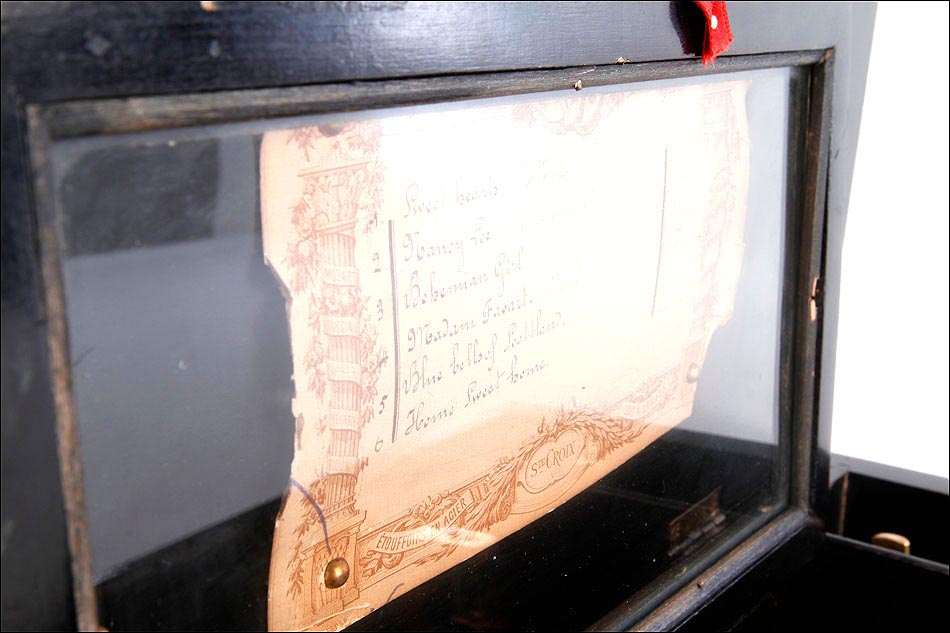 1 Sweet hearts
2 Nancy Lee
3 Bohemian Girl
4 Madam Favart
5 Blue bells of Scottland
6 Home Sweet home.
MOZART
STE CROIX
ETOUFFOIRS EN ACIER